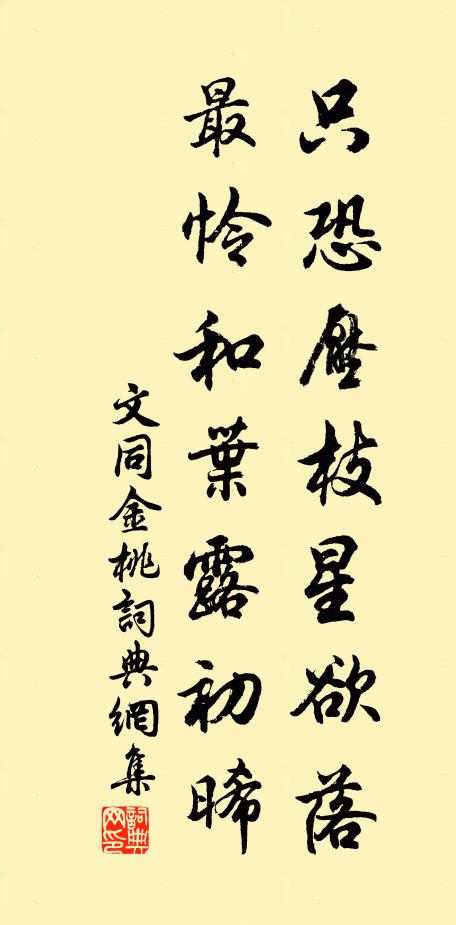 只恐壓枝星欲落
最怜和葉露初晞
文同金桃詞典網集
詞典網印